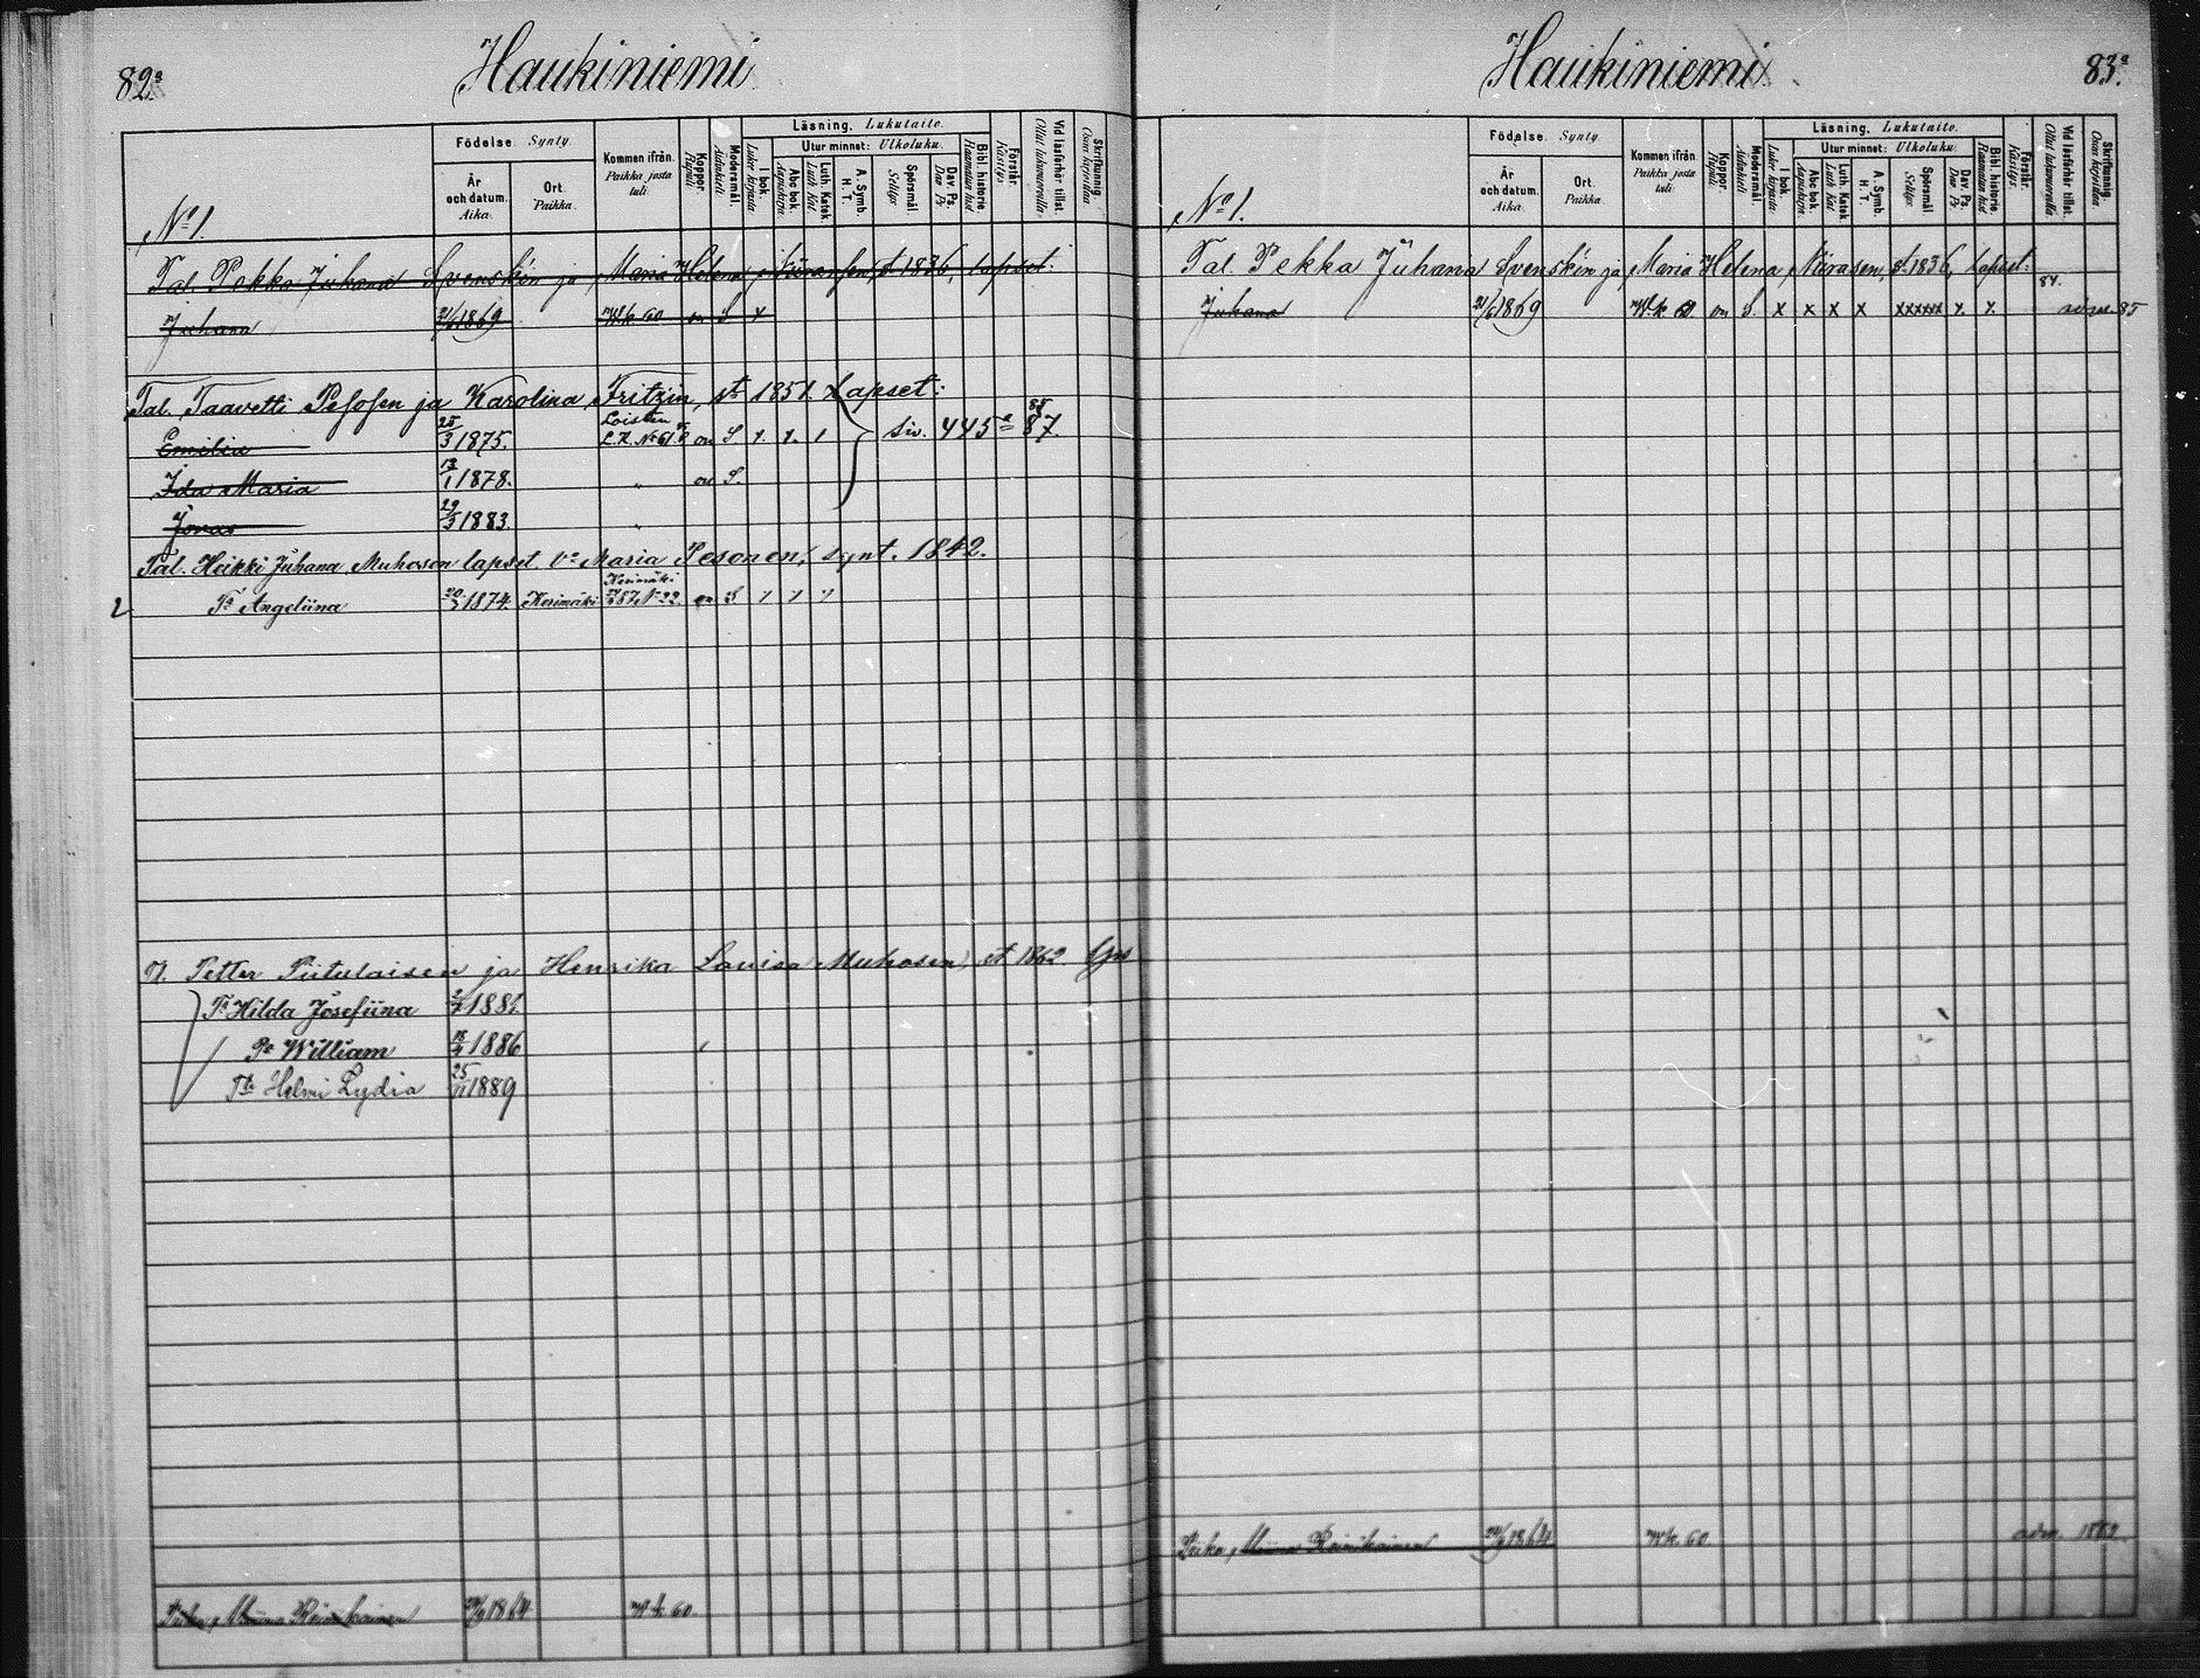 82ª
Haukiniemi
Födelse. Synty.
Kommen ifrån.
Paikka josta
tuli.
Koppor.
Rupuli.
Modersmål.
Äidinkieli
Läsning. Lukutaito.
I bok.
Lukee kirjasta
Utur minnet: Ulkoluku.
Abc bok.
Aapiskirja
Luth. Katek.
Luth kat
A. Symb.
H. T.
Spörsmål
Selitys
Dav. Ps.
Dav Ps
Bibl. historie
Raamatun hist
Förstår.
Käsitys
Vid läsförhör tillst.
Ollut lukuvuorolla
Skriftkunnig.
Osaa kirjoittaa
År
och datum.
Aika.
Ort.
Paikka.
No 1.
Tal. Pekka Juhana Svenskin ja Maria Helena Niirasen, st 1836, lapset:
Juhana 21/6 1869 W.k. 60 on S x
Tal. Taavetti Pesosen ja Karolina Fritzin, st 1851. Lapset:
Emilia 25/3 1875. Loisten L.K. No 61. on S siv. 445 87.
Ida Maria 13/1 1878. " on S.
Jonas 29/3 1883. "
Tal. Heikki Juhana Muhosen lapset vo Maria Pesonen, synt. 1842.
2 Tr Angeliina 20/3 1874. Kerimäki Kerimäki 87 No 22. on S
Petter Piitulaisen ja Henrika Lovisa Muhosen, st 1862
Tr Hilda Josefiina 1881
Pa William 1886
Tr Helmi Lydia 25/11 1889
Reinikainen 1864 W.k. 60.
Haukiniemi
83ª
Födelse. Synty.
Kommen ifrån.
Paikka josta
tuli.
Koppor
Rupuli.
Modersmål.
Äidinkieli
Läsning. Lukutaito.
I bok.
Lukee kirjasta
Utur minnet: Ulkoluku.
Abc bok.
Aapiskirja
Luth. Katek.
Luth kat
A. Symb.
H. T.
Spörsmål
Selitys.
Dav. Ps.
Dav Ps
Bibl. historie.
Raamatun hist
Förstår.
Käsitys.
Vid läsförhör tillst.
Ollut lukuvuorolla.
Skriftkunnig.
Osaa kirjoittaa.
År
och datum.
Aika.
Ort.
Paikka.
No 1.
Tal. Pekka Juhana Svenskin ja Maria Helena Niirasen, st 1836, Lapset:
84.
Juhana 21/6 1869 W.k. 60 on S. x x x x xxxxxx x. x. adm. 85
Reinikainen 1864 W.k. 60. adm. 1882.